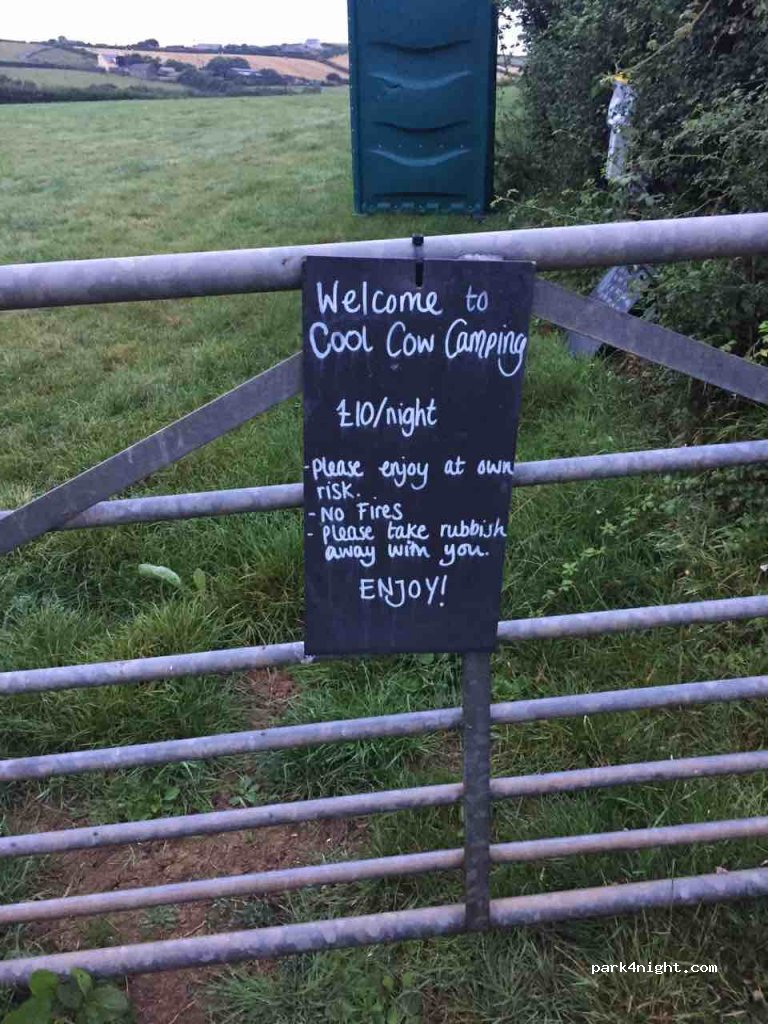 Welcome to
Cool Cow Camping
£10/night
-Please enjoy at own
risk.
- No Fires
- Please take rubbish
away with you.
ENJOY!
park4night.com